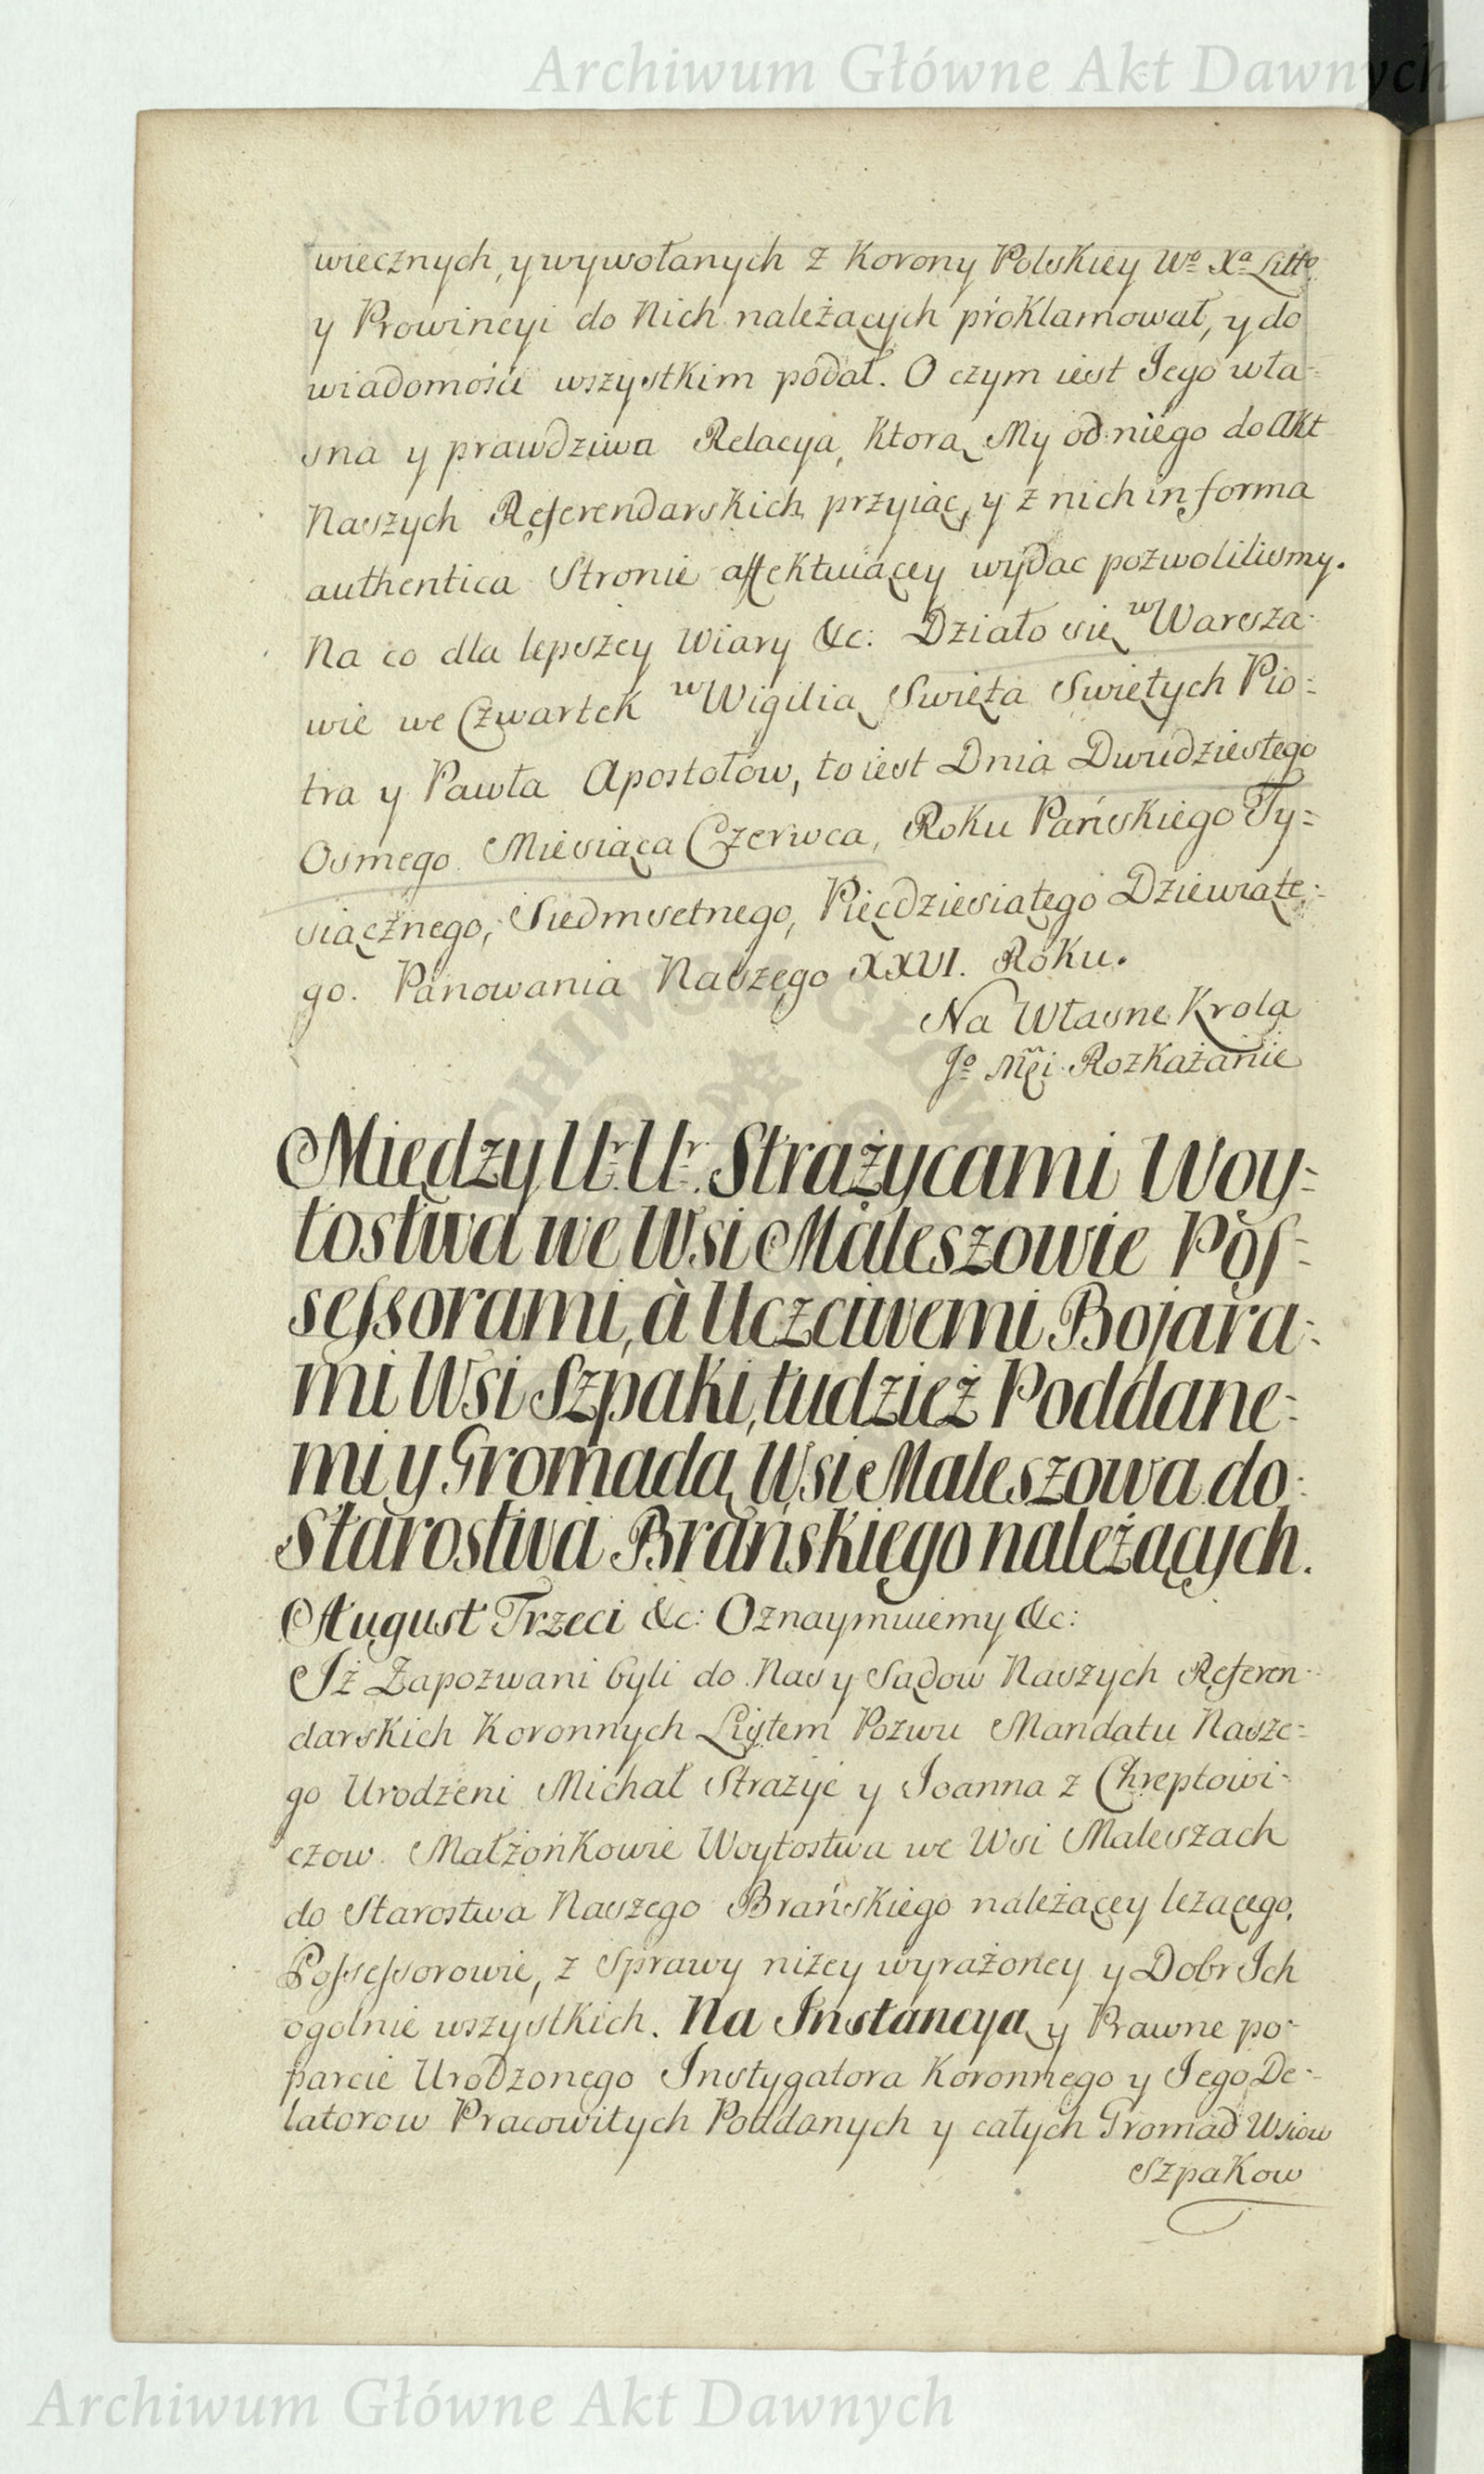 Archiwum Główne Akt Dawnych
wiecznych, y wywołanych z Korony Polskiey Wº Xª Littº
y Prowincyi do Nich należących proklamował, y do
wiadomości wszystkim podał. O czym iest Jego wła-
sna y prawdziwa Relacya, ktorą My od niego do Akt
Naszych Referendarskich przyiąc, y z nich in forma
authentica Stronie affektuiącey wydac pozwolilismy.
Na co dla lepszey Wiary &c: Działo się w Warsza-
wie we Czwartek w Wigilią Swięta Swiętych Pio=
tra y Pawła Apostołow, to iest Dnia Dwudziestego
Osmego Miesiąca Czerwca, Roku Pańskiego Ty=
siącznego, Siedmsetnego, Pięcdziesiątego Dziewiąte-
go. Panowania Naszego XXVI. Roku.
Na Własne Krola
Jº Mci Rozkazanie
Między Ur. Ur. Strażycami Woy-
tostwa we Wsi Maleszowie Pos-
sessorami, à Uczciwemi Bojara-
mi Wsi Szpaki, tudzież Poddane-
mi y Gromadą Wsi Maleszowa do
Starostwa Brańskiego należących.
August Trzeci &c: Oznaymuiemy &c:
Iż Zapozwani byli do Nas y Sądow Naszych Referen-
darskich Koronnych Listem Pozwu Mandatu Nasze=
go Urodzeni Michał Strażyc y Joanna z Chreptowi-
czow Małżonkowie Woytostwa we Wsi Maleszach
do Starostwa Naszego Brańskiego należącey leżącego,
Possessorowie, z Sprawy niżey wyrażoney y Dobr Ich
ogolnie wszystkich. Na Instancyą y Prawne po-
parcie Urodzonego Instygatora Koronnego y Jego De-
latorow Pracowitych Poddanych y całych Gromad Wsiow
Szpakow
Archiwum Główne Akt Dawnych